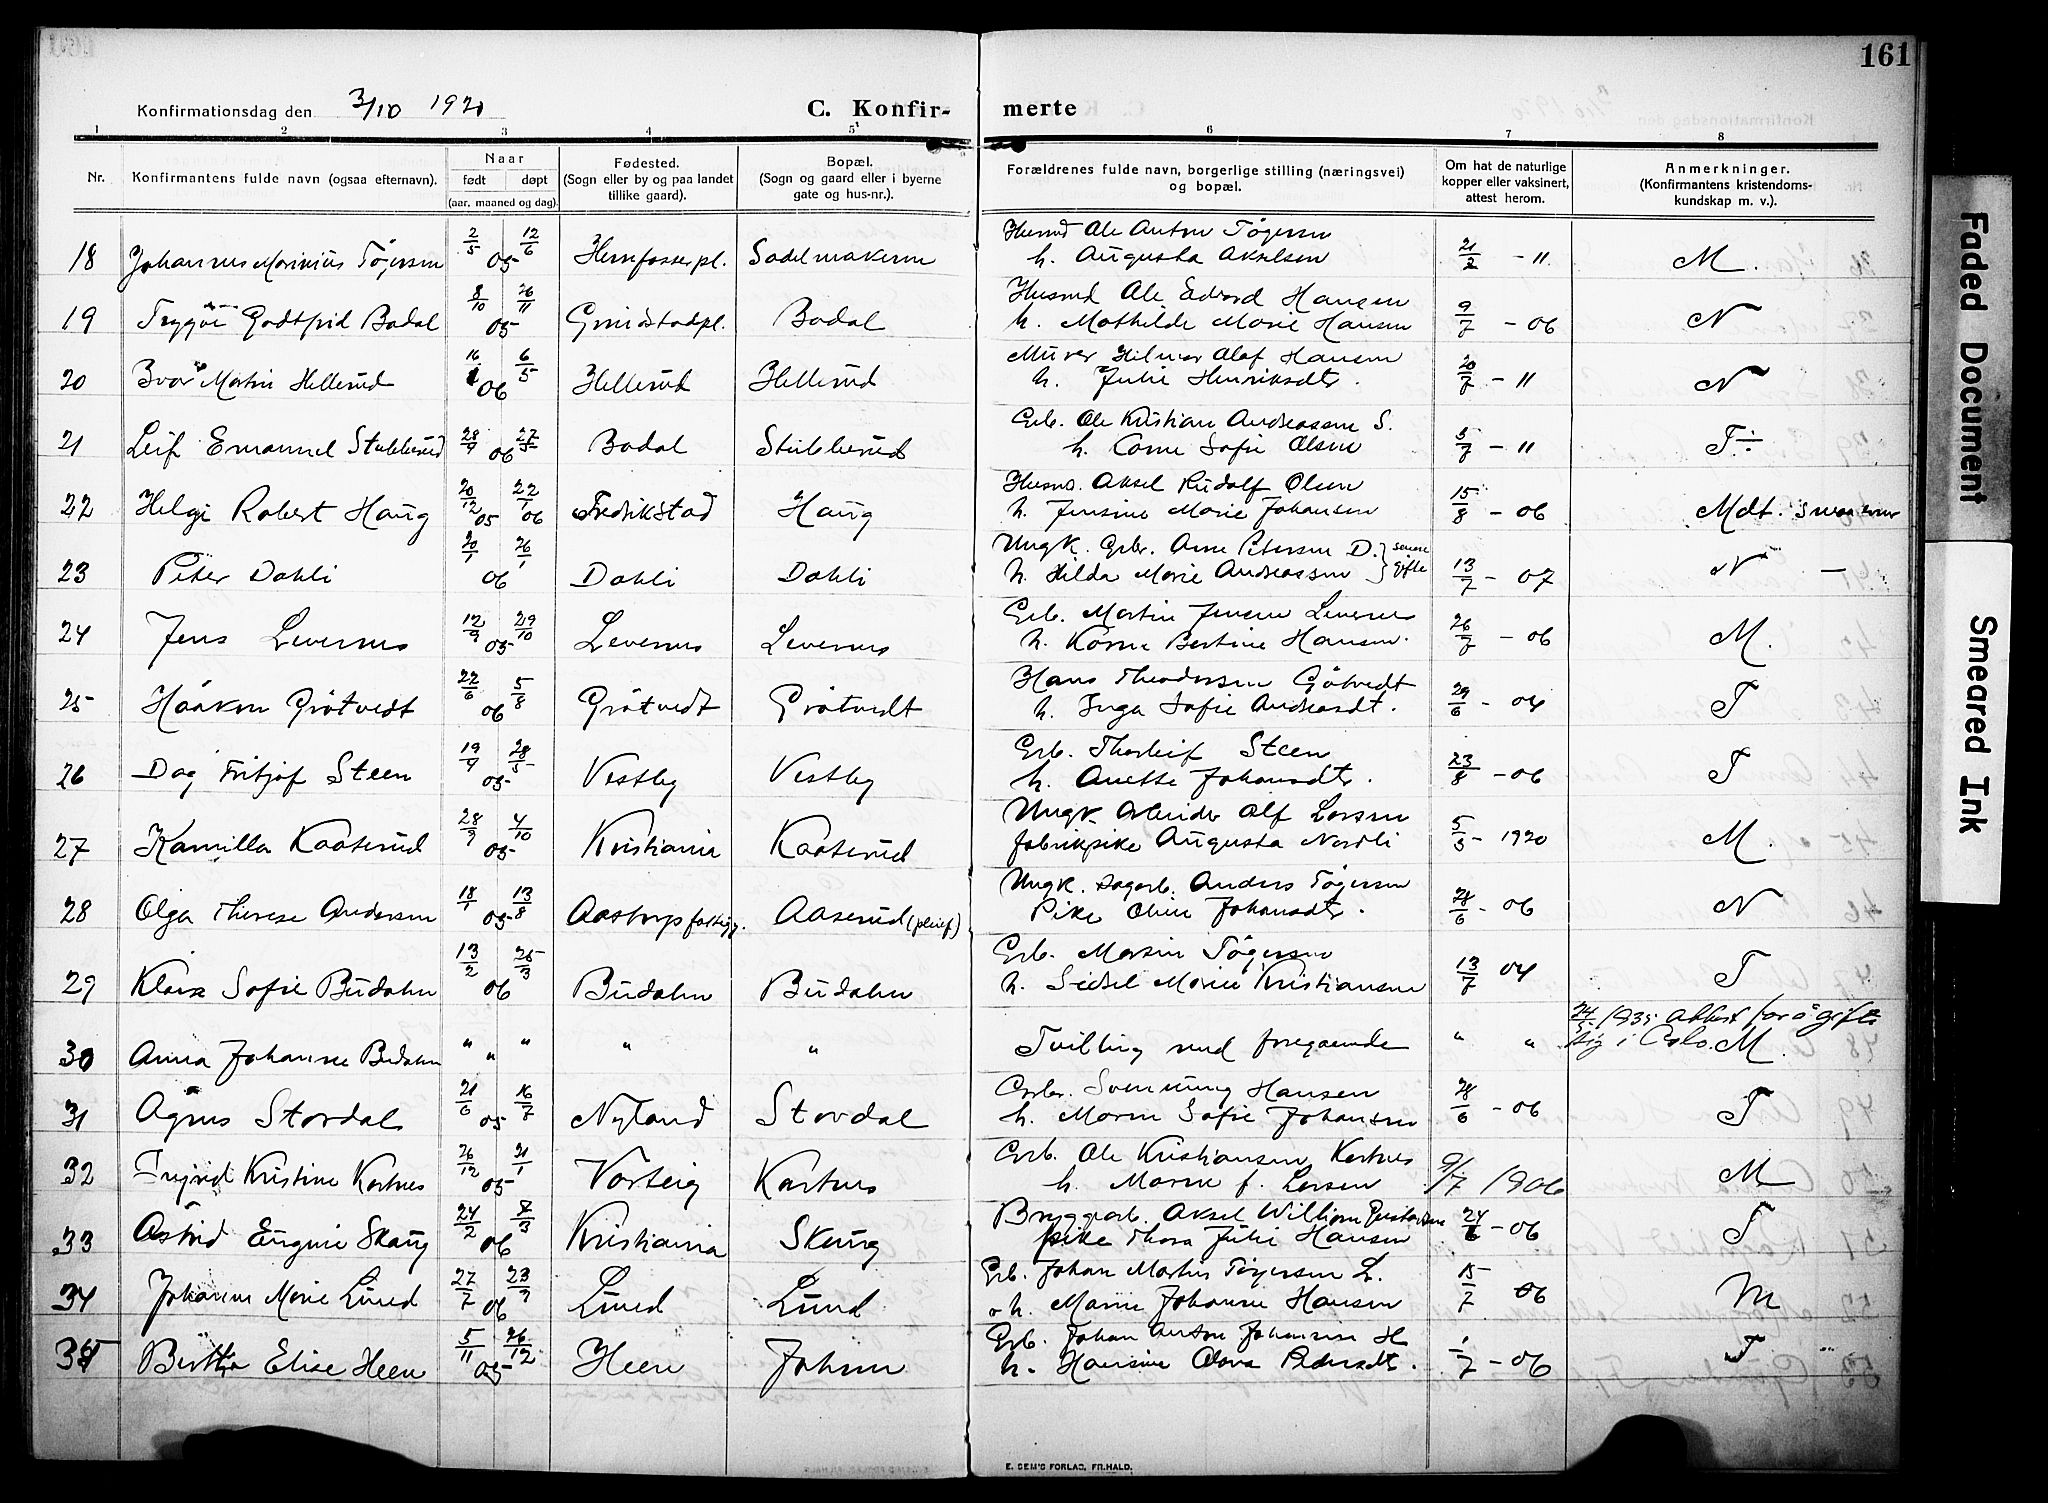 161
Konfirmationsdag den 3/10 1920
C. Konfir- merte
1 2 3 4 5 6 7 8
Nr. Konfirmantens fulde navn (ogsaa efternavn). Naar født døpt (aar, maaned og dag). Fødested. (Sogn eller by og paa landet tillike gaard). Bopæl. (Sogn og gaard eller i byerne gate og hus-nr.). Forældrenes fulde navn, borgerlige stilling (næringsvei) og bopæl. Om hat de naturlige kopper eller vaksinert, attest herom. Anmerkninger. (Konfirmantens kristendoms-kundskap m. v.).
Husmd Ole Anton Tøgersen
18 Johannes Marinius Tøgersen 2/5 12/6 05 Sadelmakeren h. Augusta Akselsen 21/2 - " M.
Husmd Ole Edvard Hansen
19 Trygve Godtfrid Bodal 8/10 26/11 05 Grimstadpl. Bodal h. Mathilde Marie Hansen 9/7 - 06 N
Murer Hilmar Olaf Hansen
20 Ivar Martin Hellerud 16 6/5 06 Hellerud Hellerud h. Julie Henriksdtr. 20/7 - " N
Grb. Ole Kristian Andreassen S.
21 Leif Emanuel Stubberud 28/9 27/5 06 Bodal Stubberud h. Sofie Olsen 5/7 - " T÷
Husmd. Aksel Rudolf Olsen
22 Helge Robert Haug 20/12 05 22/1 06 Fredrikstad Haug h. Jensine Marie Johansen 15/8 - 06 Mdt.
Ungk. Grbr. Arne Petersen D. } senere
23 Peter Dahli 20/1 26/1 06 Dahli Dahli h. Hilda Marie Andreassen } gifte 13/7 - 07 N —
Grb. Martin Jensen Levernes
24 Jens Levernes 12/9 29/10 05 Levernes Levernes h. Karen Bertine Hansen. 26/7 - 06 M.
Hans Theodorsen Grötvedt
25 Haakon Grötvedt 22/6 5/8 06 Grötvedt Grötvedt h. Inga Sofie Andreasdt. 29/6 - 04 T
Grb. Thorleif Steen
26 Dag Fritjof Steen 19/9 28/5 05 Vestby Vestby h. Anette Johansdtr. 23/8 - 06 T
Ungk. Arbeider Alf Larsen
27 Kamilla Kaaterud 28/9 4/10 05 Kristiania Kaaterud fabrikpike Augusta Nordli 5/3 - 1920 M.
Ungk. sagarb. Anders Tøgersen
28 Olga Therese Andersen 18/1 13/8 05 Aastorp fattigg. Aaserud (pleief) Pike Oline Johansdtr. 28/6 - 06 N
Grb. Martin Tøgersen
29 Klara Sofie Budalen 13/2 25/3 06 Budalen Budalen h. Sidsel Marie Kristiansen 13/7 04 T
24/5 1935 Attest for å gifte
30 Anna Johanne Budalen " " " " " Tvilling med foregaaende " " sig i Oslo. M.
Arb. Svenning Hansen
31 Agnes Stordal 21/6 16/7 05 Nyland Stordal h. Maren Sofie Johansen 28/6 - 06 T
Arb. Ole Kristiansen Kartnes
32 Ingrid Kristine Kartnes 26/12 21/1 05 Varteig Kartnes h. Maren f. Larsen 9/7 1906 M
Bryggearb. Aksel William Gustavsen
33 Astrid Eugenie Skaug 24/2 7/3 06 Kristiania Skaug pike Thora Julie Hansen 24/6 - 06 T
Grb. Johan Martin Tøgersen L.
34 Johanne Marie Lund 27/7 23/9 06 Lund Lund o h. Marie Johanne Hansen 15/7 06 M
Grb. Johan Anton Johansen H
35 Bertha Elise Heen 5/11 26/12 05 Heen h. Hansine Olava Pedersdt. 1/7 - 06 T
E. SEM'S FORLAG, FR.HALD.
Faded Document
Smeared Ink